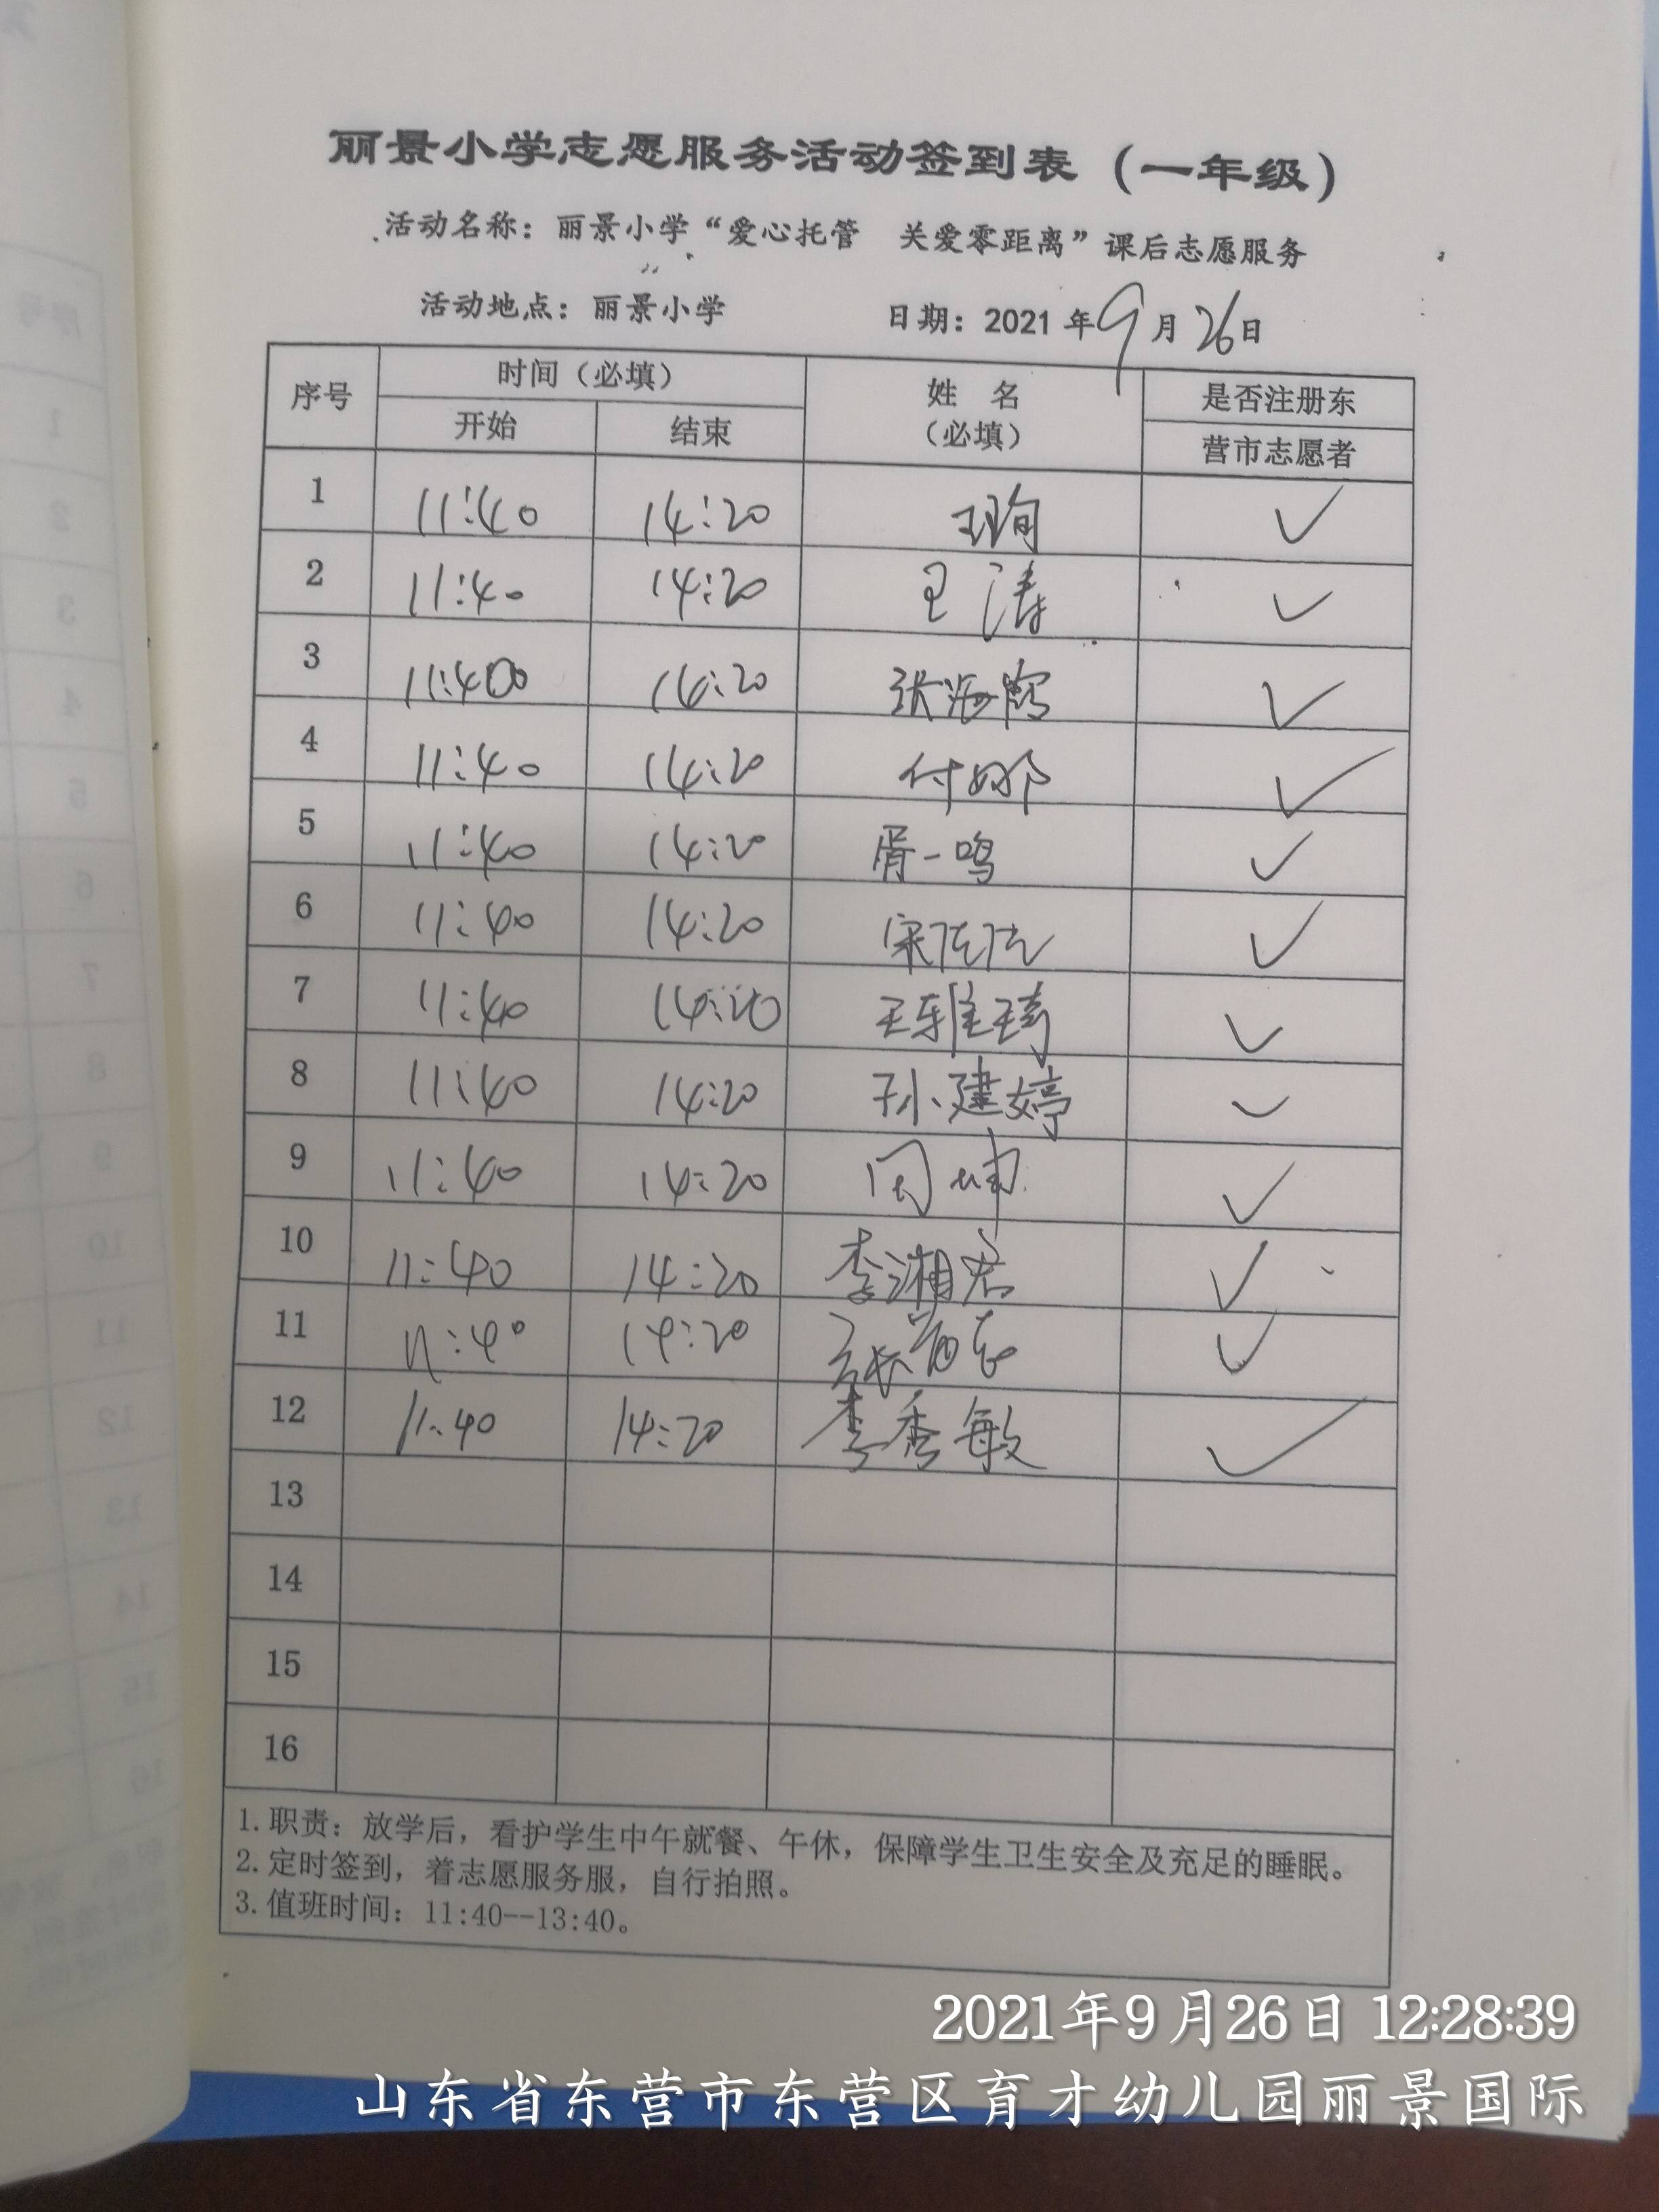 丽景小学志愿服务活动签到表（一年级）
活动名称：丽景小学“爱心托管 关爱零距离”课后志愿服务
活动地点：丽景小学 日期：2021年9月26日
序号 时间（必填） 姓 名（必填） 是否注册东营市志愿者
开始 结束
1 11:40 14:20 王珣 ✓
2 11:40 14:20 王涛 ✓
3 11:40 14:20 张海霞 ✓
4 11:40 14:20 付娜 ✓
5 11:40 14:20 胥一鸣 ✓
6 11:40 14:20 宋 ✓
7 11:40 14:20 王雅琦 ✓
8 11:40 14:20 孙建婷 ✓
9 11:40 14:20 周坤 ✓
10 11:40 14:20 李湘君 ✓
11 11:40 14:20 张 ✓
12 11:40 14:20 李秀敏 ✓
13
14
15
16
1.职责：放学后，看护学生中午就餐、午休，保障学生卫生安全及充足的睡眠。
2.定时签到，着志愿服务服，自行拍照。
3.值班时间：11:40--13:40。
2021年9月26日 12:28:39
山东省东营市东营区育才幼儿园丽景国际